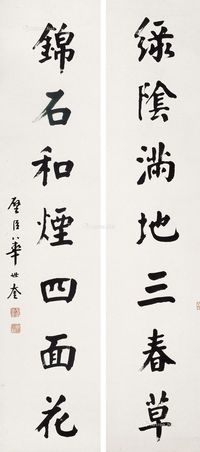 綠陰滿地三春草
錦石和煙四面花
璧臣華世奎